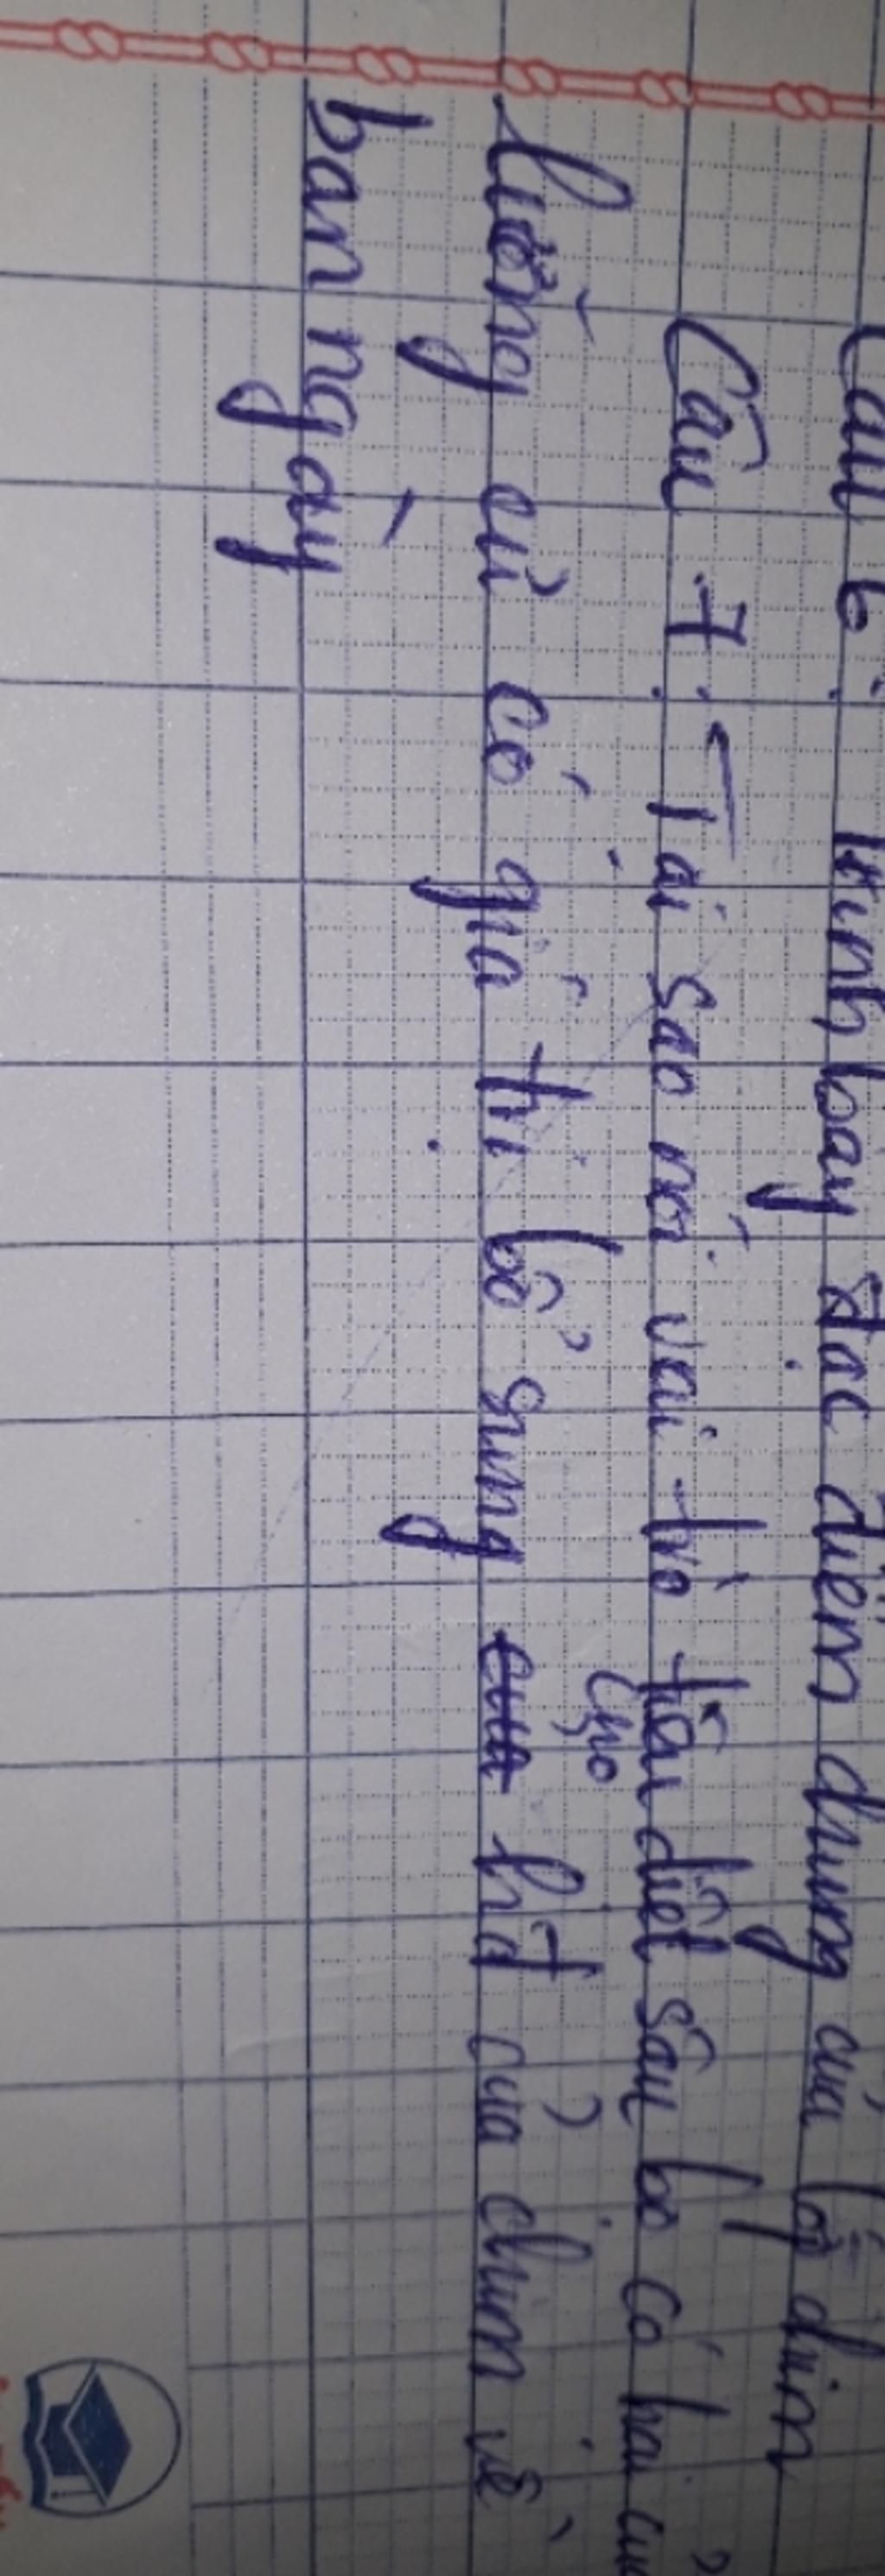 Câu 6: trình bày đặc điểm chung của lớp chim
Câu 7: Tại sao nói vai trò tiêu diệt sâu bọ có hại của
lưỡng cư có giá trị bổ sung cho h/đ của chim về
ban ngày